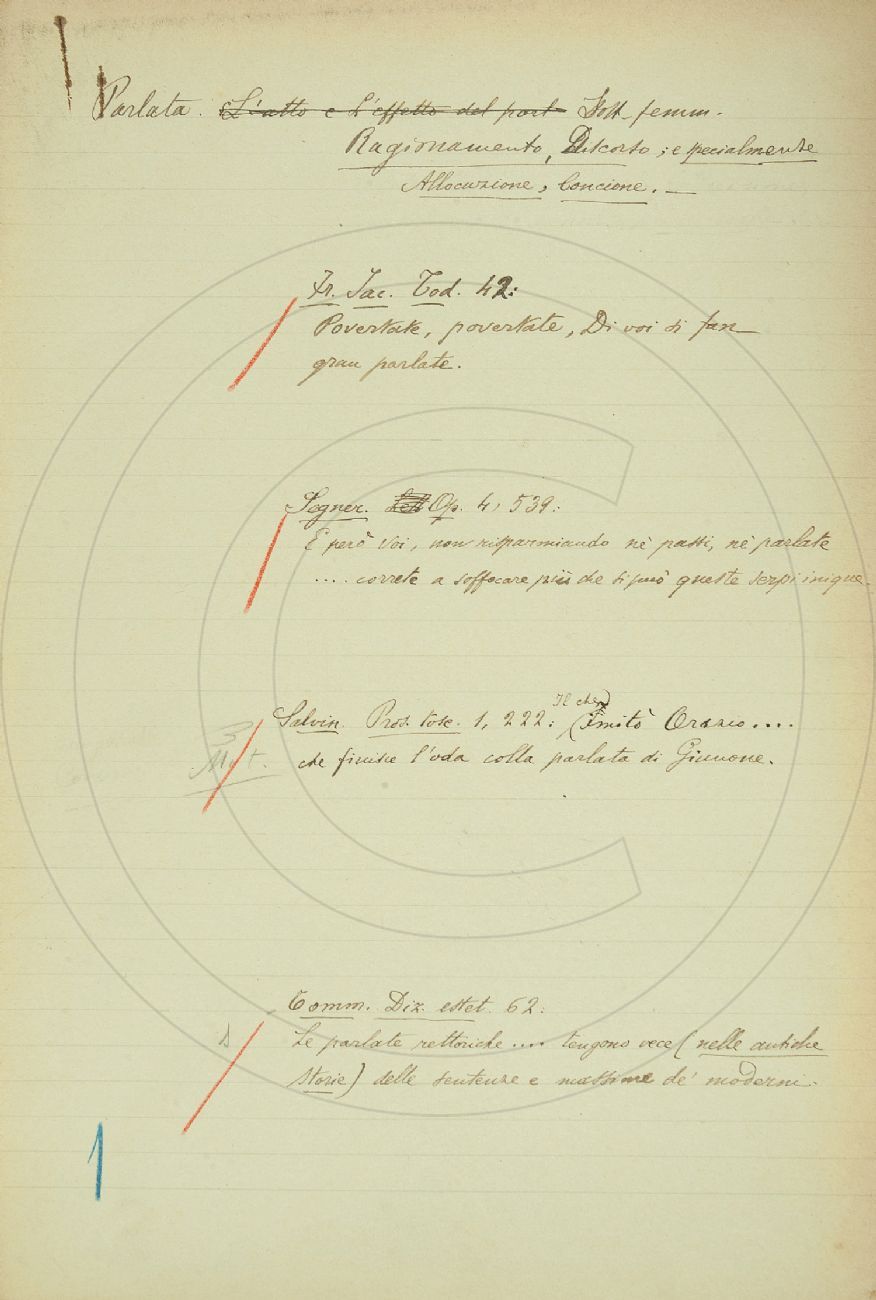 Parlata. L'atto e l'effetto del parl Sost. femm.
Ragionamento, Discorso; e specialmente
Allocuzione, Concione. —
Fr. Jac. Tod. 42:
Povertate, povertate, Di voi si fan
gran parlate.
Segner. Op. 4, 539:
E però voi, non risparmiando nè passi, nè parlate
.... correte a soffocare più che si può queste serpi inique.
Il che
Salvin. Pros. tosc. 1, 222: (imitò Orazio ....
Mat. che finisce l'oda colla parlata di Giunone.
Tomm. Diz. estet. 62:
Le parlate rettoriche .... tengono vece (nelle antiche
storie) delle sentenze e massime de' moderni.